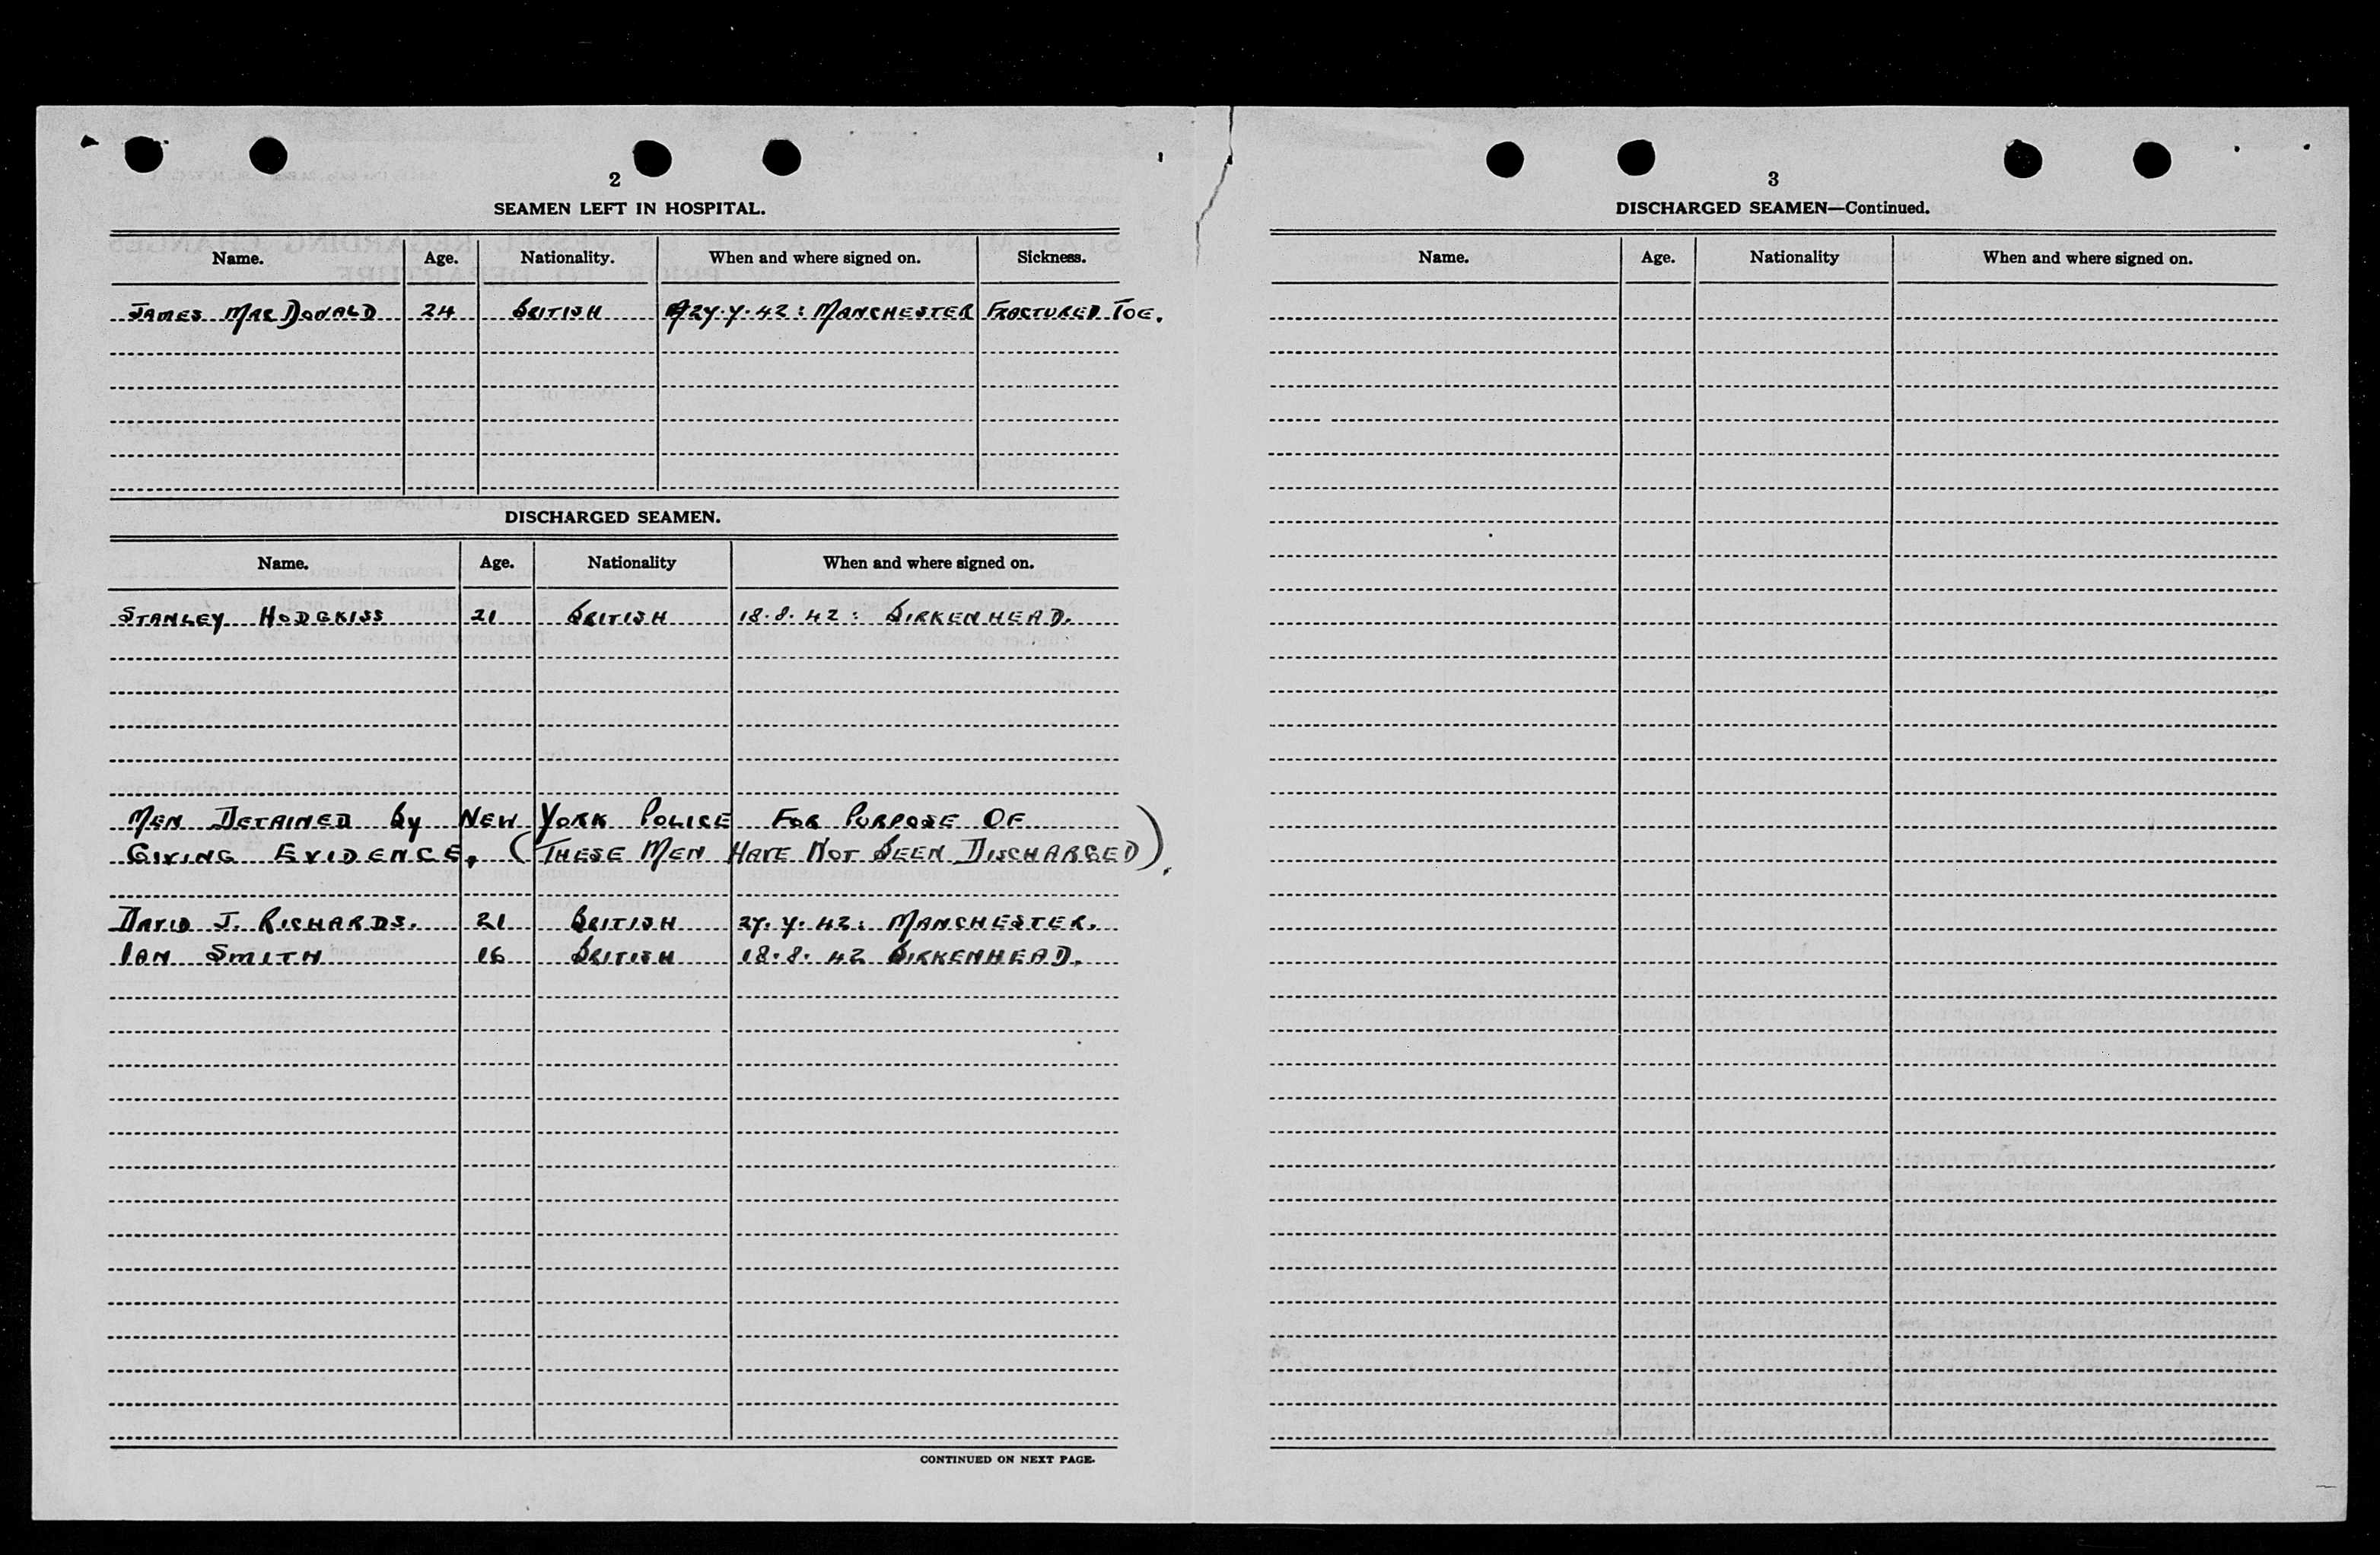 2
SEAMEN LEFT IN HOSPITAL.
Name. Age. Nationality. When and where signed on. Sickness.
JAMES MACDONALD 24 BRITISH 27.7.42: MANCHESTER FRACTURED TOE.
DISCHARGED SEAMEN.
Name. Age. Nationality When and where signed on.
STANLEY HODGKISS 21 BRITISH 18.8.42: BIRKENHEAD.
MEN DETAINED BY NEW YORK POLICE FOR PURPOSE OF
GIVING EVIDENCE. (THESE MEN HAVE NOT BEEN DISCHARGED).
DAVID J. RICHARDS. 21 BRITISH 27.7.42: MANCHESTER.
IAN SMITH 16 BRITISH 18.8.42 BIRKENHEAD.
CONTINUED ON NEXT PAGE.
3
DISCHARGED SEAMEN—Continued.
Name. Age. Nationality When and where signed on.